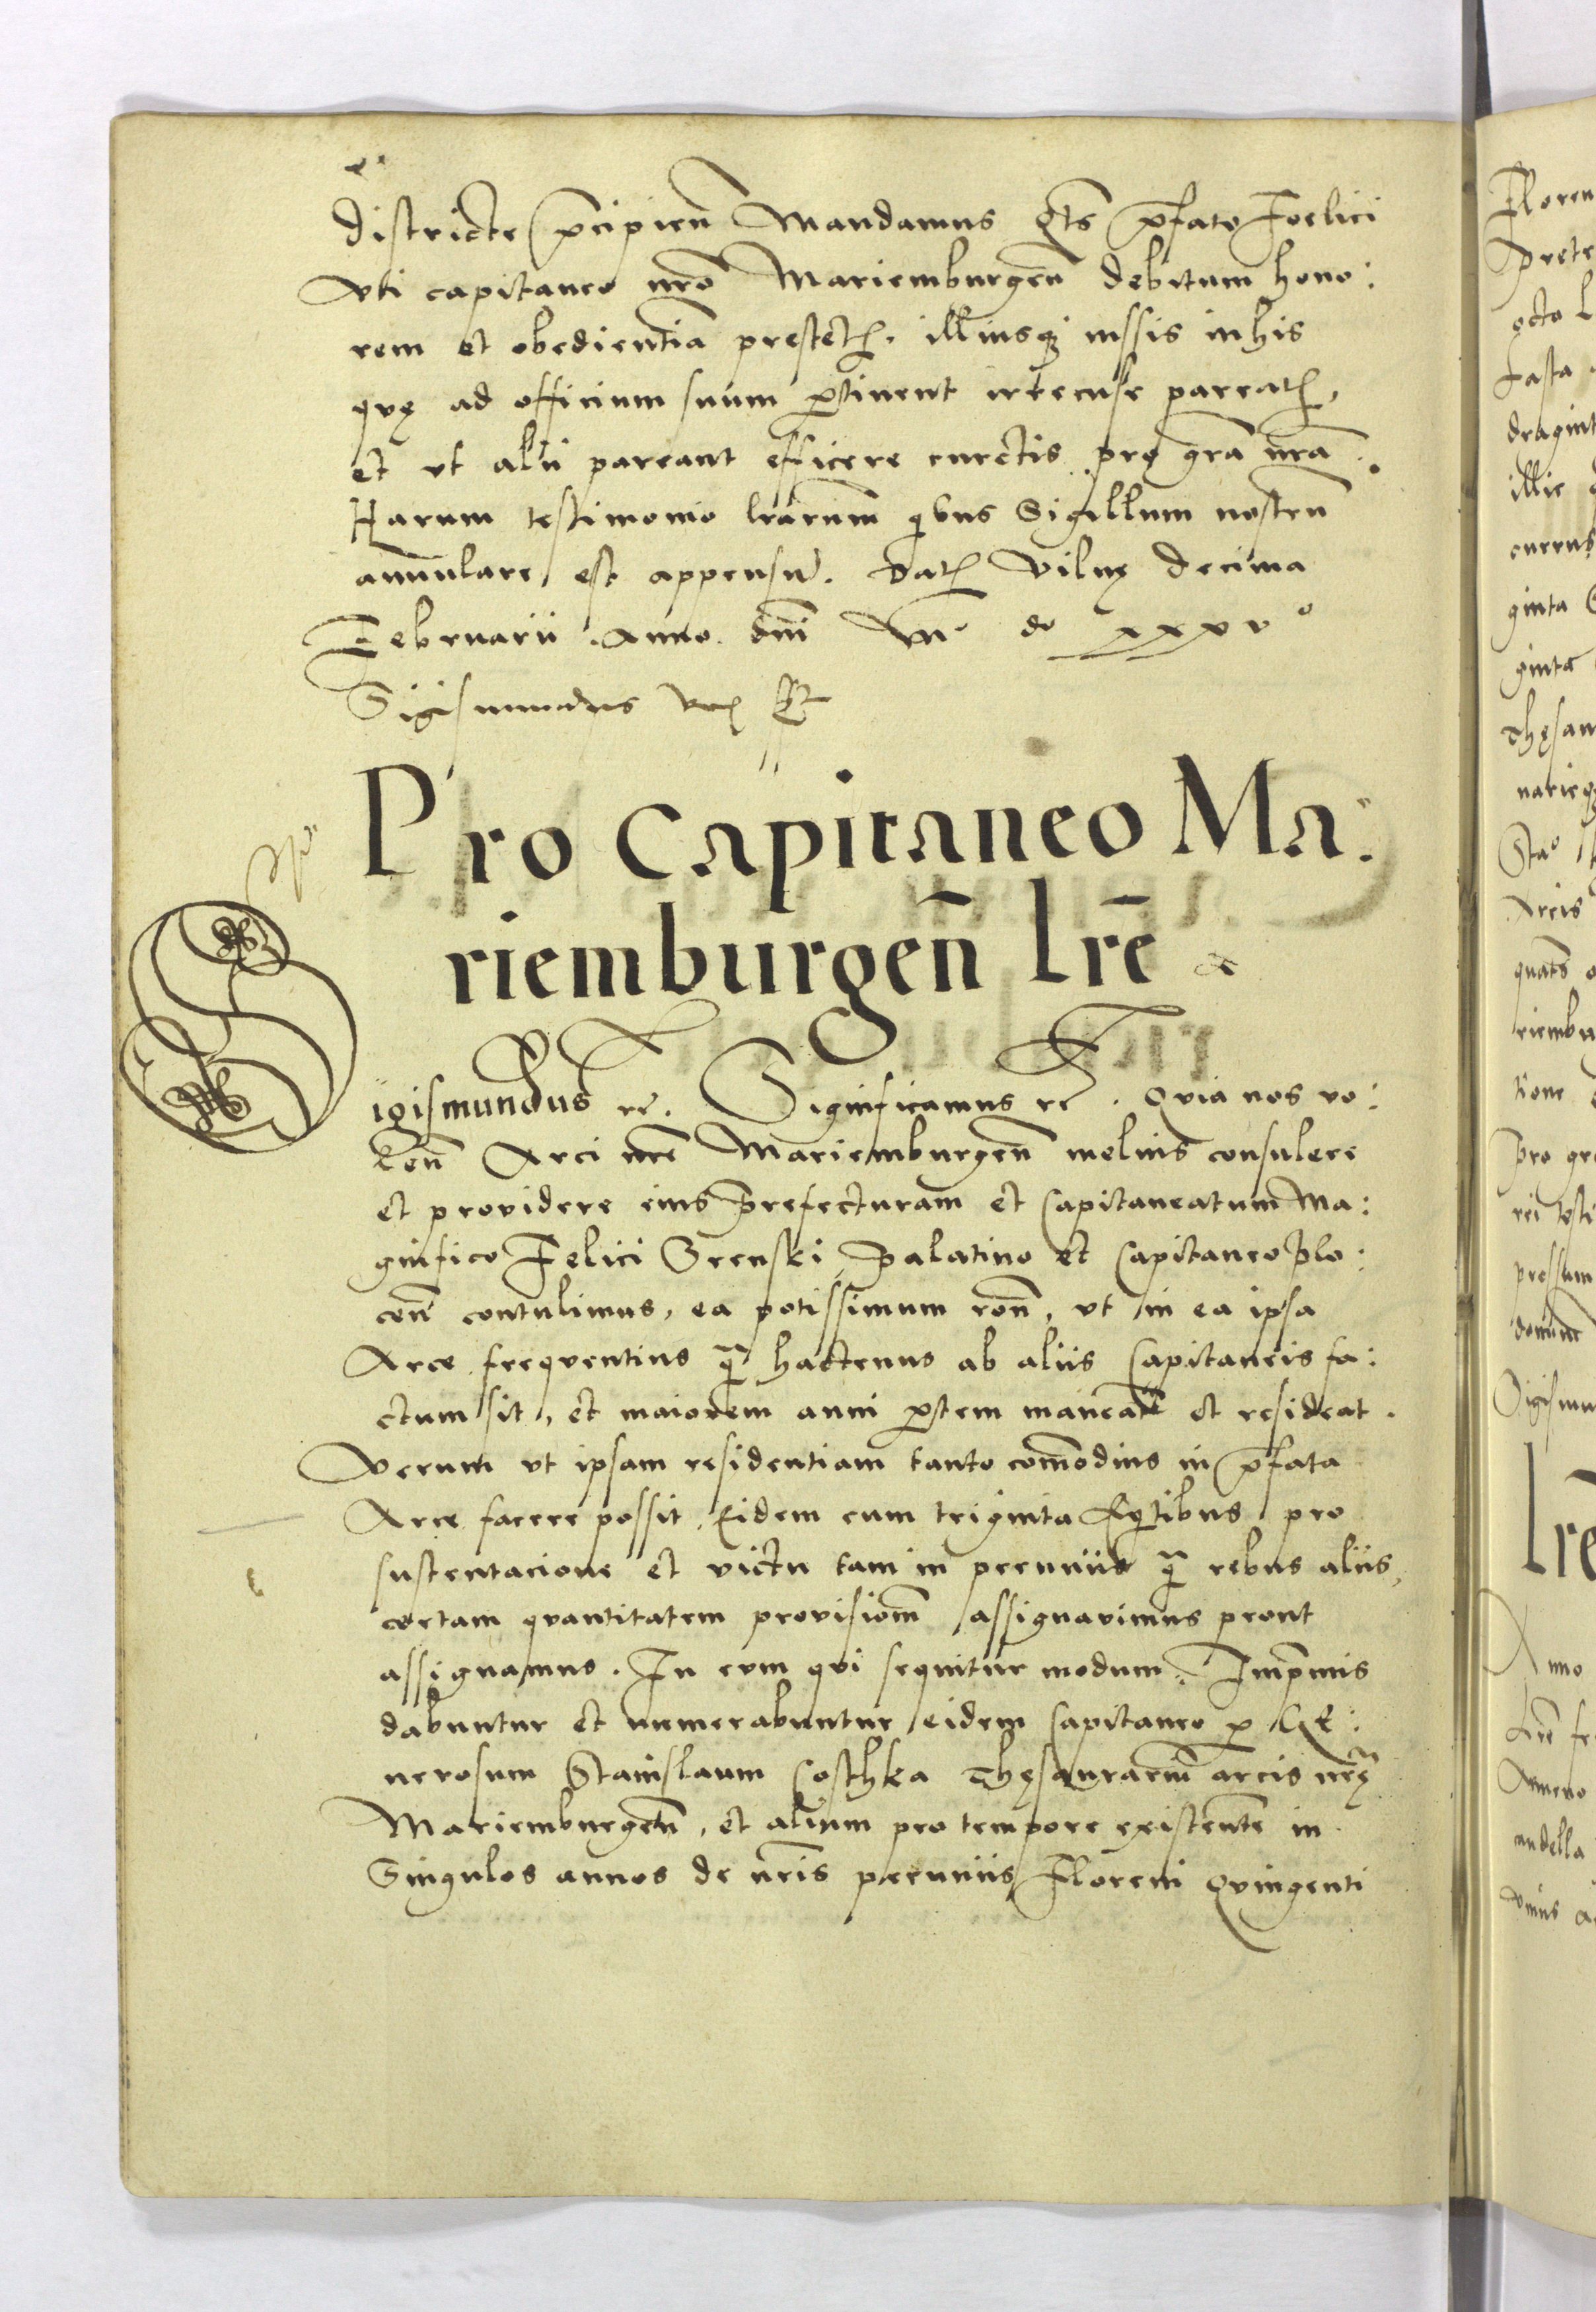 districte p̄cipien̄ Mandamus Q̄ts p̄fato Foelici
vti capitaneo nr̄o Mariemburgen̄ debitum hono:
rem et obedientiā prestetꝭ. illiusqꝫ iussis in his
quę ad officium suum ꝑtinent irrecuse pareatꝭ,
et vt alii pareant efficere curetis pro gr̄a nr̄a.
Harum testimonio lr̄arum̄ qͥbus Sigillum nostrū
annulare est appensū. Datꝭ Vilnę decima
Februarii Anno dn̄i Mº dº xxxvº
Sigismundus Rex sst
Pro Capitaneo Ma:
riemburgen̄ lrē
Sigismundus rē. Significamus rē. Quia nos vo:
len̄ Arci nrē Mariemburgen̄ melius consulere
et providere eius Prefecturam et Capitaneatum Ma:
gnifico Felici Srenski Palatino et Capitaneo Plo:
cen̄ contulimus, ea potissimum ron̄, vt in ea ipsa
Arce frequentius q̄ hactenus ab aliis Capitaneis fa:
ctum sit, et maiorem anni ꝑtem maneat et resideat.
Verum vt ipsam residentiam tanto com̄odius in p̄fata
Arce facere possit, Eidem cum triginta Eqͥtibus pro
sustentacione et victu tam in pecuniis q̄ rebus aliis,
certam quantitatem provisiom̄ assignavimus prout
assignamus. In eum qui sequitur modum. Imp̄mis
dabuntur et numerabuntur eidem Capitaneo ꝑ GE:
nerosum Stanislaum Costhka Thęsaurariū arcis nrę̄
Mariemburgen̄, et alium pro tempore existentē in
Singulos annos de nr̄is pecuniis Floreni Quingenti